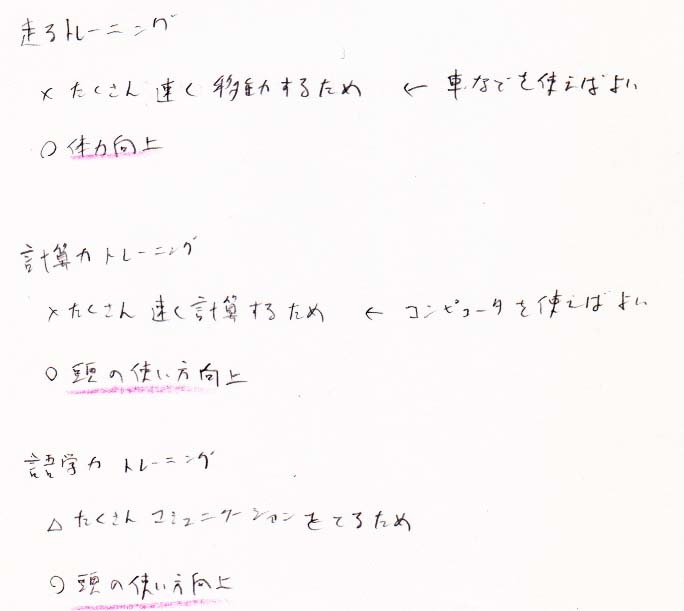 走るトレーニング
× たくさん 速く 移動するため ← 車などを使えばよい
○ 体力向上
計算力トレーニング
× たくさん 速く計算するため ← コンピュータを使えばよい
○ 頭の使い方向上
語学力トレーニング
△ たくさん コミュニケーションをとるため
○ 頭の使い方向上